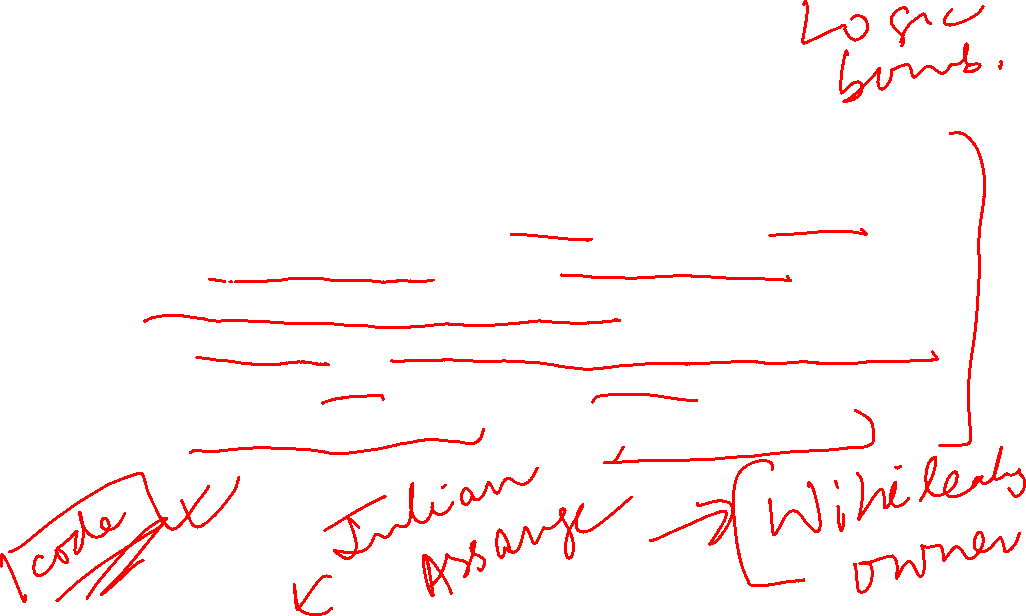 Logic
bomb.
code
Julian
Assange
Wikileaks
owner